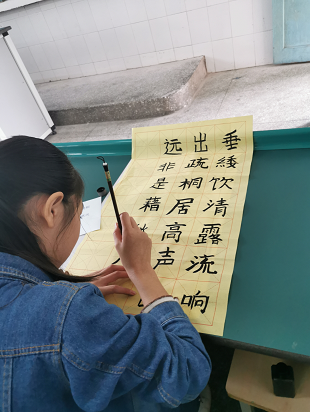 垂緌饮清露流响
出疏桐居高声
远非是藉